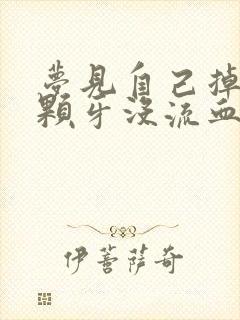 夢見自己掉
顆牙沒流血
伊菩薩奇